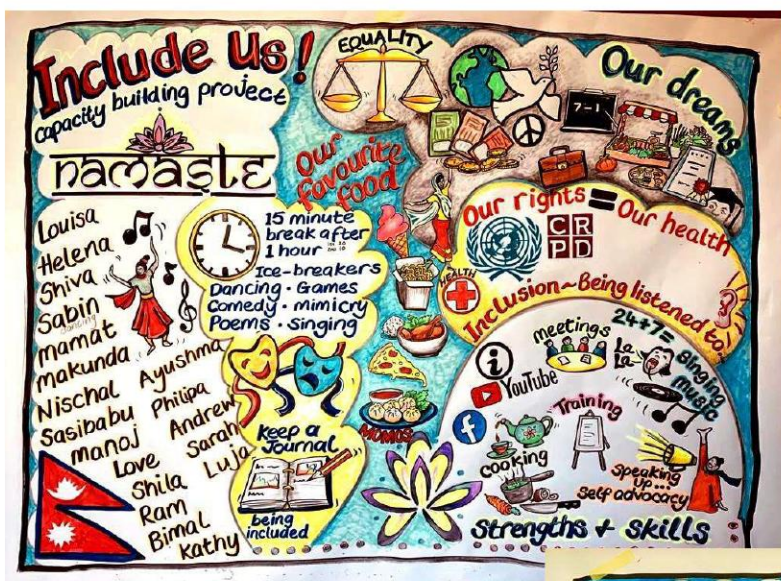 Include Us!
capacity building project
namaste
Louisa
Helena
Shiva
Sabin
dancing
mamat
makunda
Nischal
Sasibabu
manoj
Ayushma
Philipa
Andrew
Sarah
Luja
Love
Shila
Ram
Bimal
Kathy
15 minute
break after
1 hour
Ice-breakers
Dancing · Games
Comedy · mimicry
Poems · singing
keep a
Journal
being
included
Our
favourite
food
MOMOS
EQUALITY
Our dreams
7-1
Our rights = Our health
CR
PD
HEALTH
Inclusion ~ Being listened to
i
meetings
24+7=
singing
music
La
La
YouTube
f
Training
cooking
Speaking
up...
Self advocacy
Strengths + skills